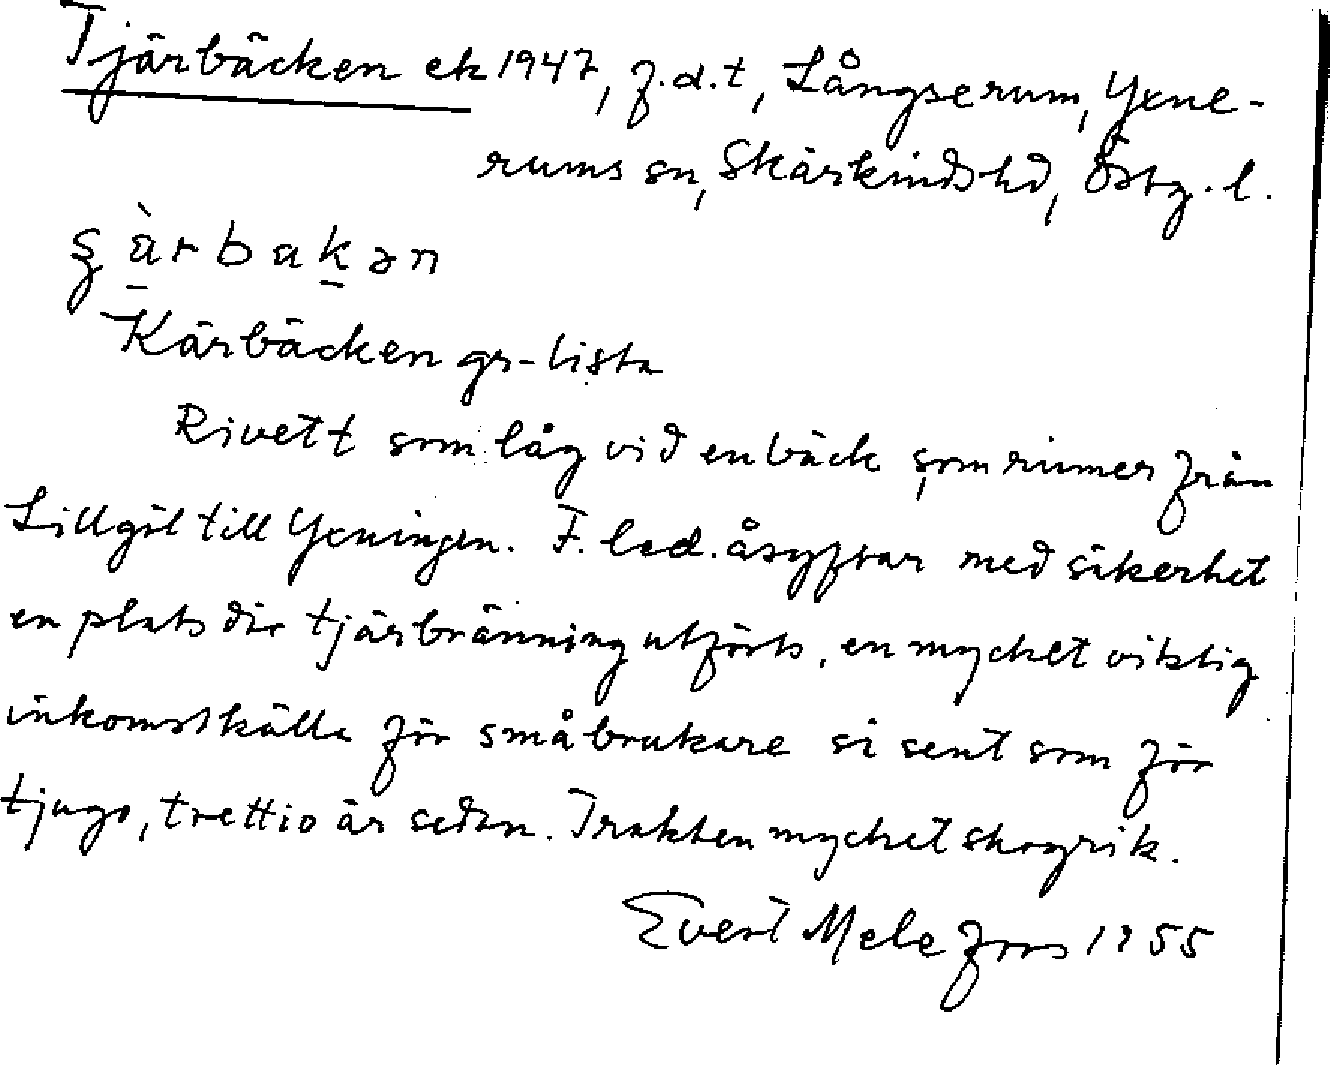 Tjärbäcken ek 1947, f.d.t, Långserum, Yxne-
rums sn, Skärkinds hd, Östg. l.
Kärbäcken gs-lista
Rivett som låg vid en bäck som rinner från
Lillgöl till Yxningen. F. led. åsyftar med säkerhet
en plats där tjärbränning utförts, en mycket viktig
inkomstkälla för småbrukare så sent som för
tjugo, trettio år sedan. Trakten mycket skogrik.
Evert Melefors 1955